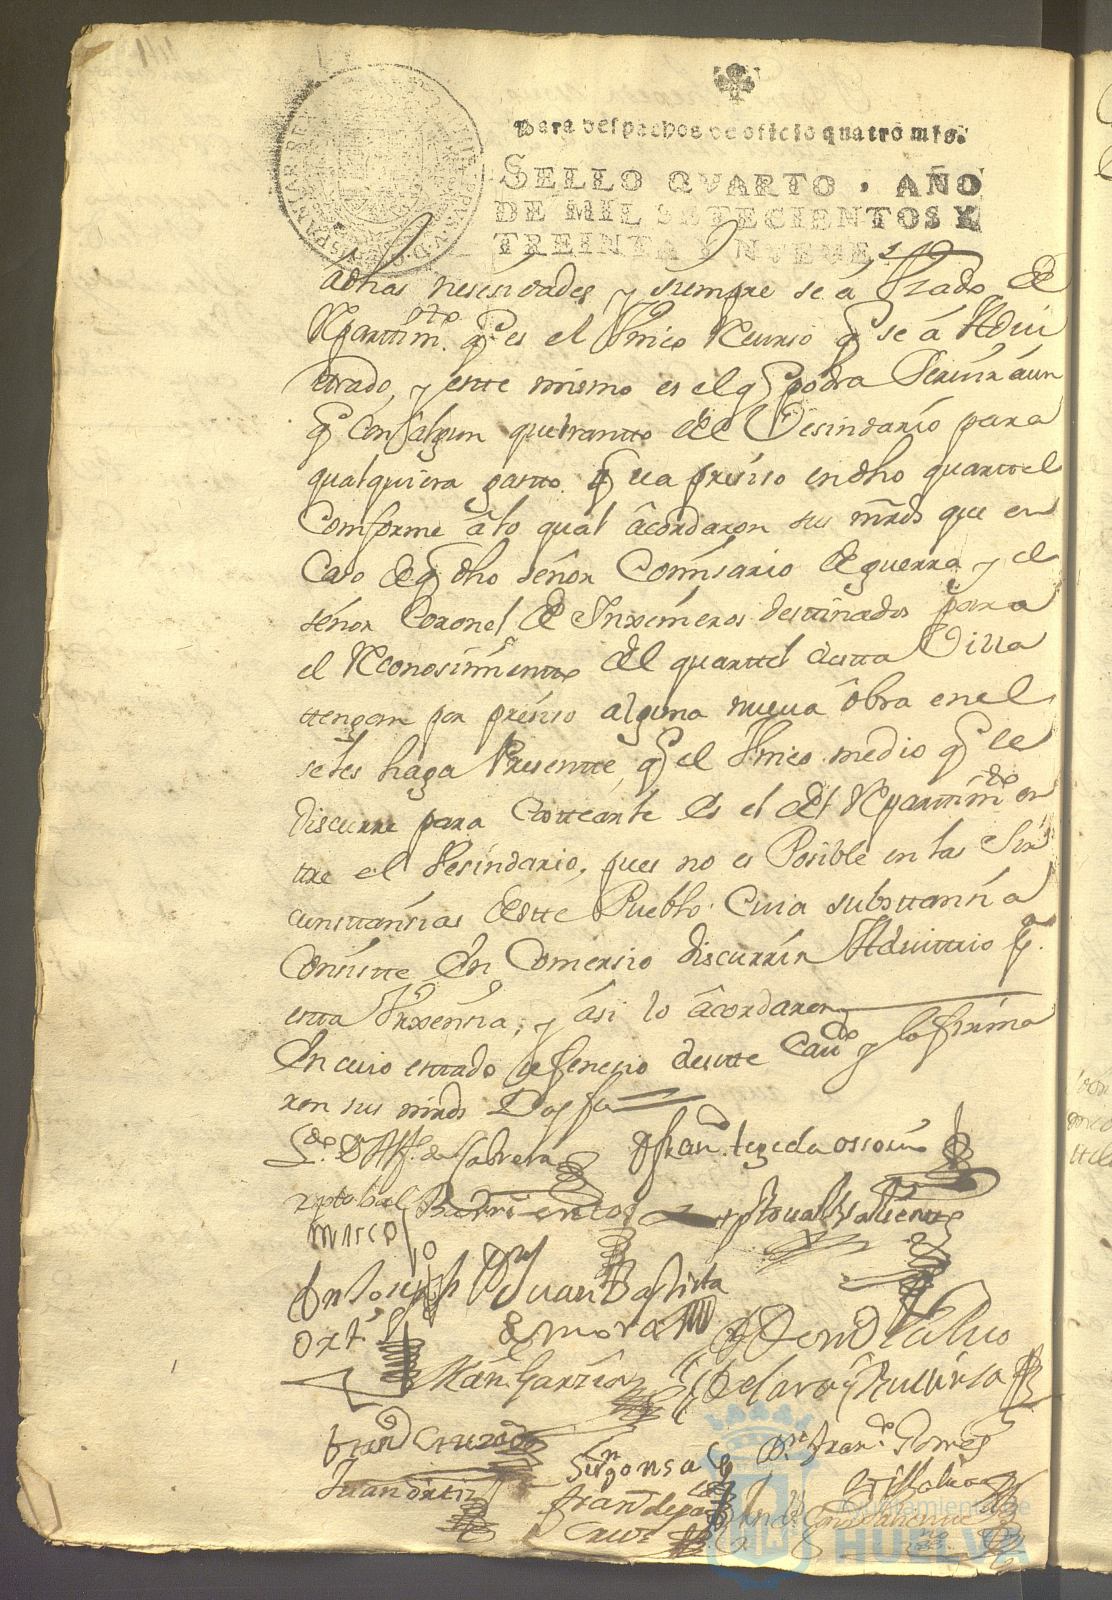 Para despachos de oficio quatro mrs.
SELLO QVARTO, AÑO
DE MIL SETECIENTOS Y
TREINTA Y NUEUE.
adhas nesesidades, y siempre se á Vsado de
Rpartimto. q es el Vnico Recurso q se á Adui
trado, y este mismo es el q podra Seruir áun
q Con algun quebranto del Vesindario para
qualquiera gasto q sea presiso en dho quarttel
Conforme á lo qual acordaron sus mrds que en
Caso de q dho señor Comisario de guerra y el
señor Coronel de Inxenieros destinados para
el Reconosimiento del quarttel desta Villa
ttengan por presiso alguna nueua obra en el
se les haga Presentte, q el Vnico medio q se
discurre para Costearle Es el del Rpartimto en
tre el Vesindario, pues no es Posible en las Sir
cunstansias deste Pueblo Cuia substtansia
Consiste En Comersio discurrir Aduitrio pa.
esta Vrxensia, y ási lo ácordaron
En cuio estado se fenesio deste Caudo y lo firma
ron sus mrds Doy fee
de Cabrera Dn fran. tegeda ossorio
xptobal Barrientos xptoual Valiente
Antto Joseph Juan Baptista
Ortiz de mora
Garzon de Laro
fran Cruzado Gonsa Dn. fran. Gomes
Juan ortiz fran de paz
Ayuntamiento de
HUELVA